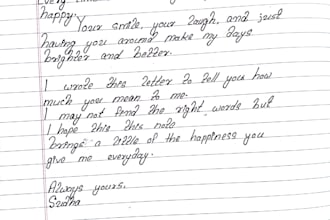 happy.
Your smile, your laugh, and just
having you around make my days
brighter and better.
I wrote this letter to tell you how
much you mean to me.
I may not find the right words but
I hope this this note
brings a little of the happiness you
give me everyday.
Always yours.